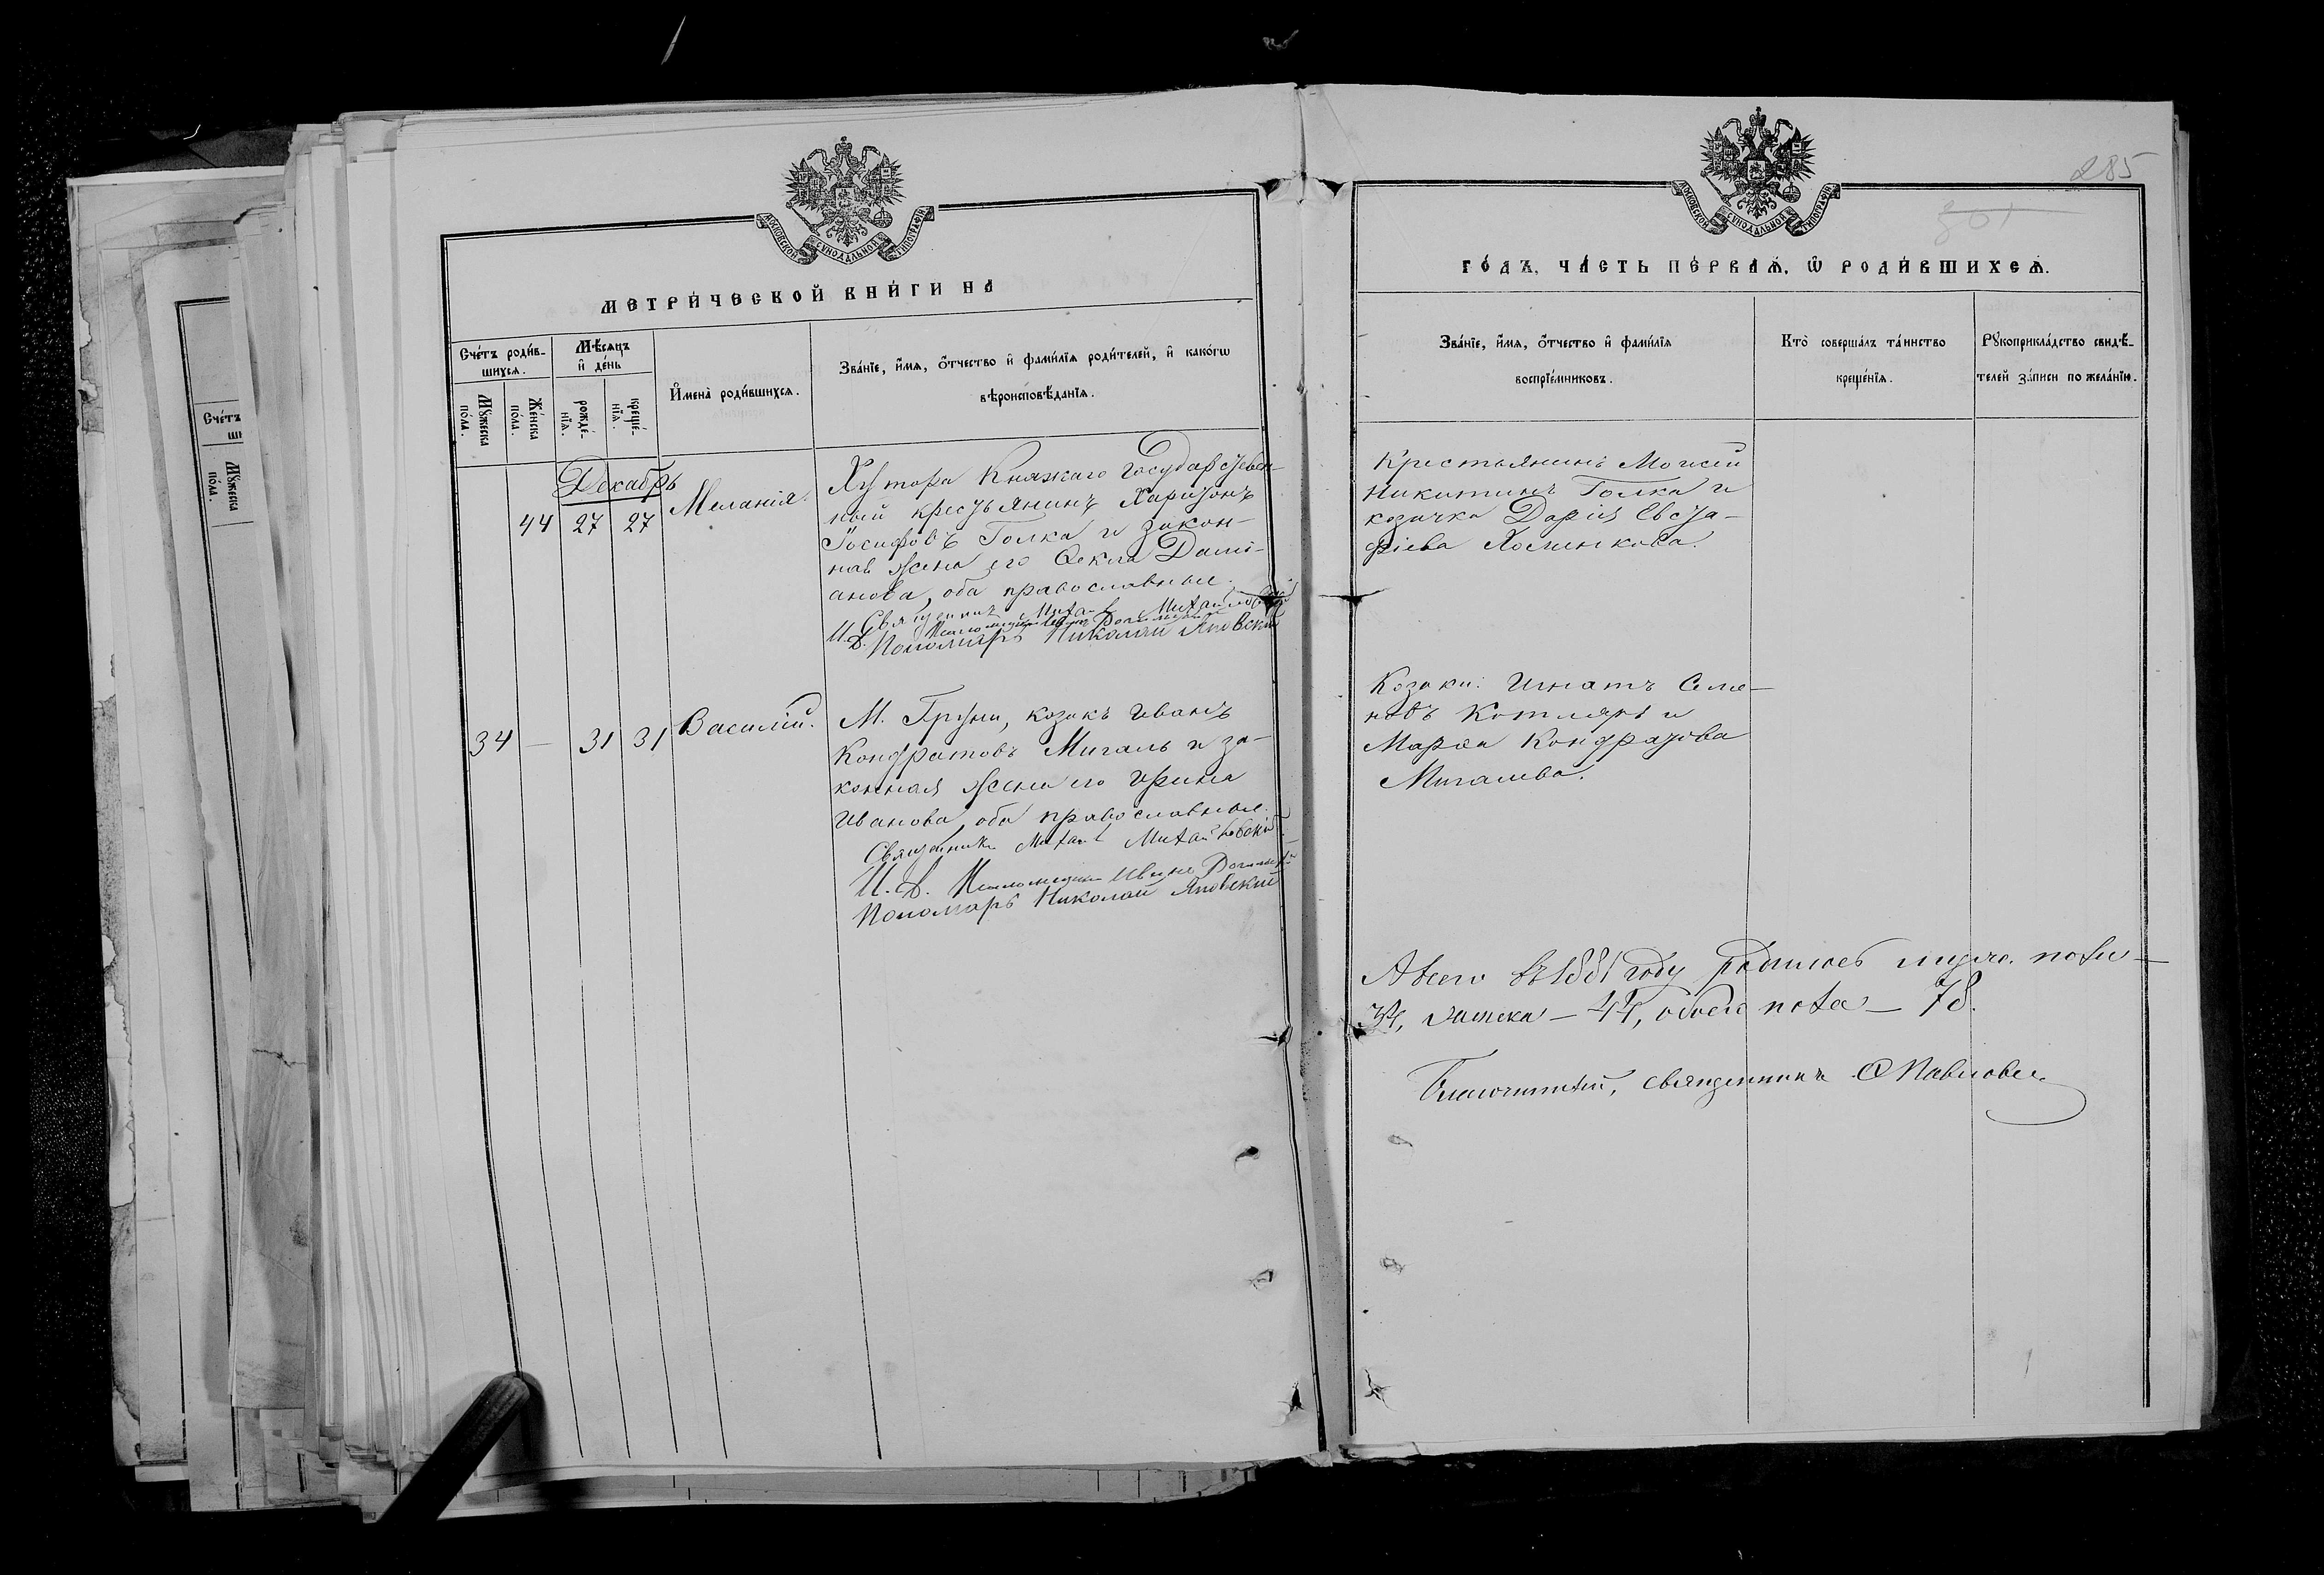 285
801
МОСКОВСКОЙ СѴНОДАЛЬНОЙ ТИПОГРАФІИ
МЕТРИ́ЧЕСКОЙ КНИ́ГИ НА
Сче́тъ роди́в-
шихся.
Мѣ́сяцъ
и҆ де́нь
Мꙋжеска
по́ла.
Же́нска
по́ла.
рожде́-
нїѧ.
креще́-
нїѧ.
И҆мена̀ роди́вшихся.
Зва́нїе, и҆́мѧ, ѻ҆́тчество и҆ фами́лїѧ роди́телей, и҆ како́гѡ
вѣроисповѣ́данїѧ.
Декабрь
44 27 27
Меланія.
Хутора Княжаго Государствен-
ный крестьянинъ Харитонъ
Іосифовъ Голка и закон-
ная жена его Ѳекла Дамі-
анова, оба православные.
Священникъ Михаилъ Михайловскій
И. Д. Псаломщика Иванъ
Пономарь Николай Яновскій
34 — 31 31
Василій.
М. Груни, козакъ Иванъ
Кондратовъ Мигаль и за-
конная жена его Ирина
Иванова, оба православные.
Священникъ Михаилъ Михайловскій
И. Д. Псаломщика Иванъ
Пономарь Николай Яновскій
МОСКОВСКОЙ СѴНОДАЛЬНОЙ ТИПОГРАФІИ
ГО́ДЪ, ЧА́СТЬ ПЕ́РВАѦ, Ѡ҆ РОДИ́ВШИХСѦ.
Зва́нїе, и҆́мѧ, ѻ҆́тчество и҆ фами́лїѧ
воспрїе́мниковъ.
Кто̀ соверша́лъ та́инство
креще́нїѧ.
Рꙋкоприкла́дство свидѣ́-
телей за́писи по жела́нїю.
Крестьянинъ Моисей
Никитинъ Голка и
козачка Дарія Евста-
фіева Хоменкова.
Козаки: Игнатъ Семе-
новъ Котляръ и
Марѳа Кондратова
Мигалева.
А всего въ 1881 году родилось муж. пола —
34, женска — 44, обоего пола — 78.
Благочинный, священникъ Павловъ.
Сче́тъ
ши
Мꙋжеска
по́ла.